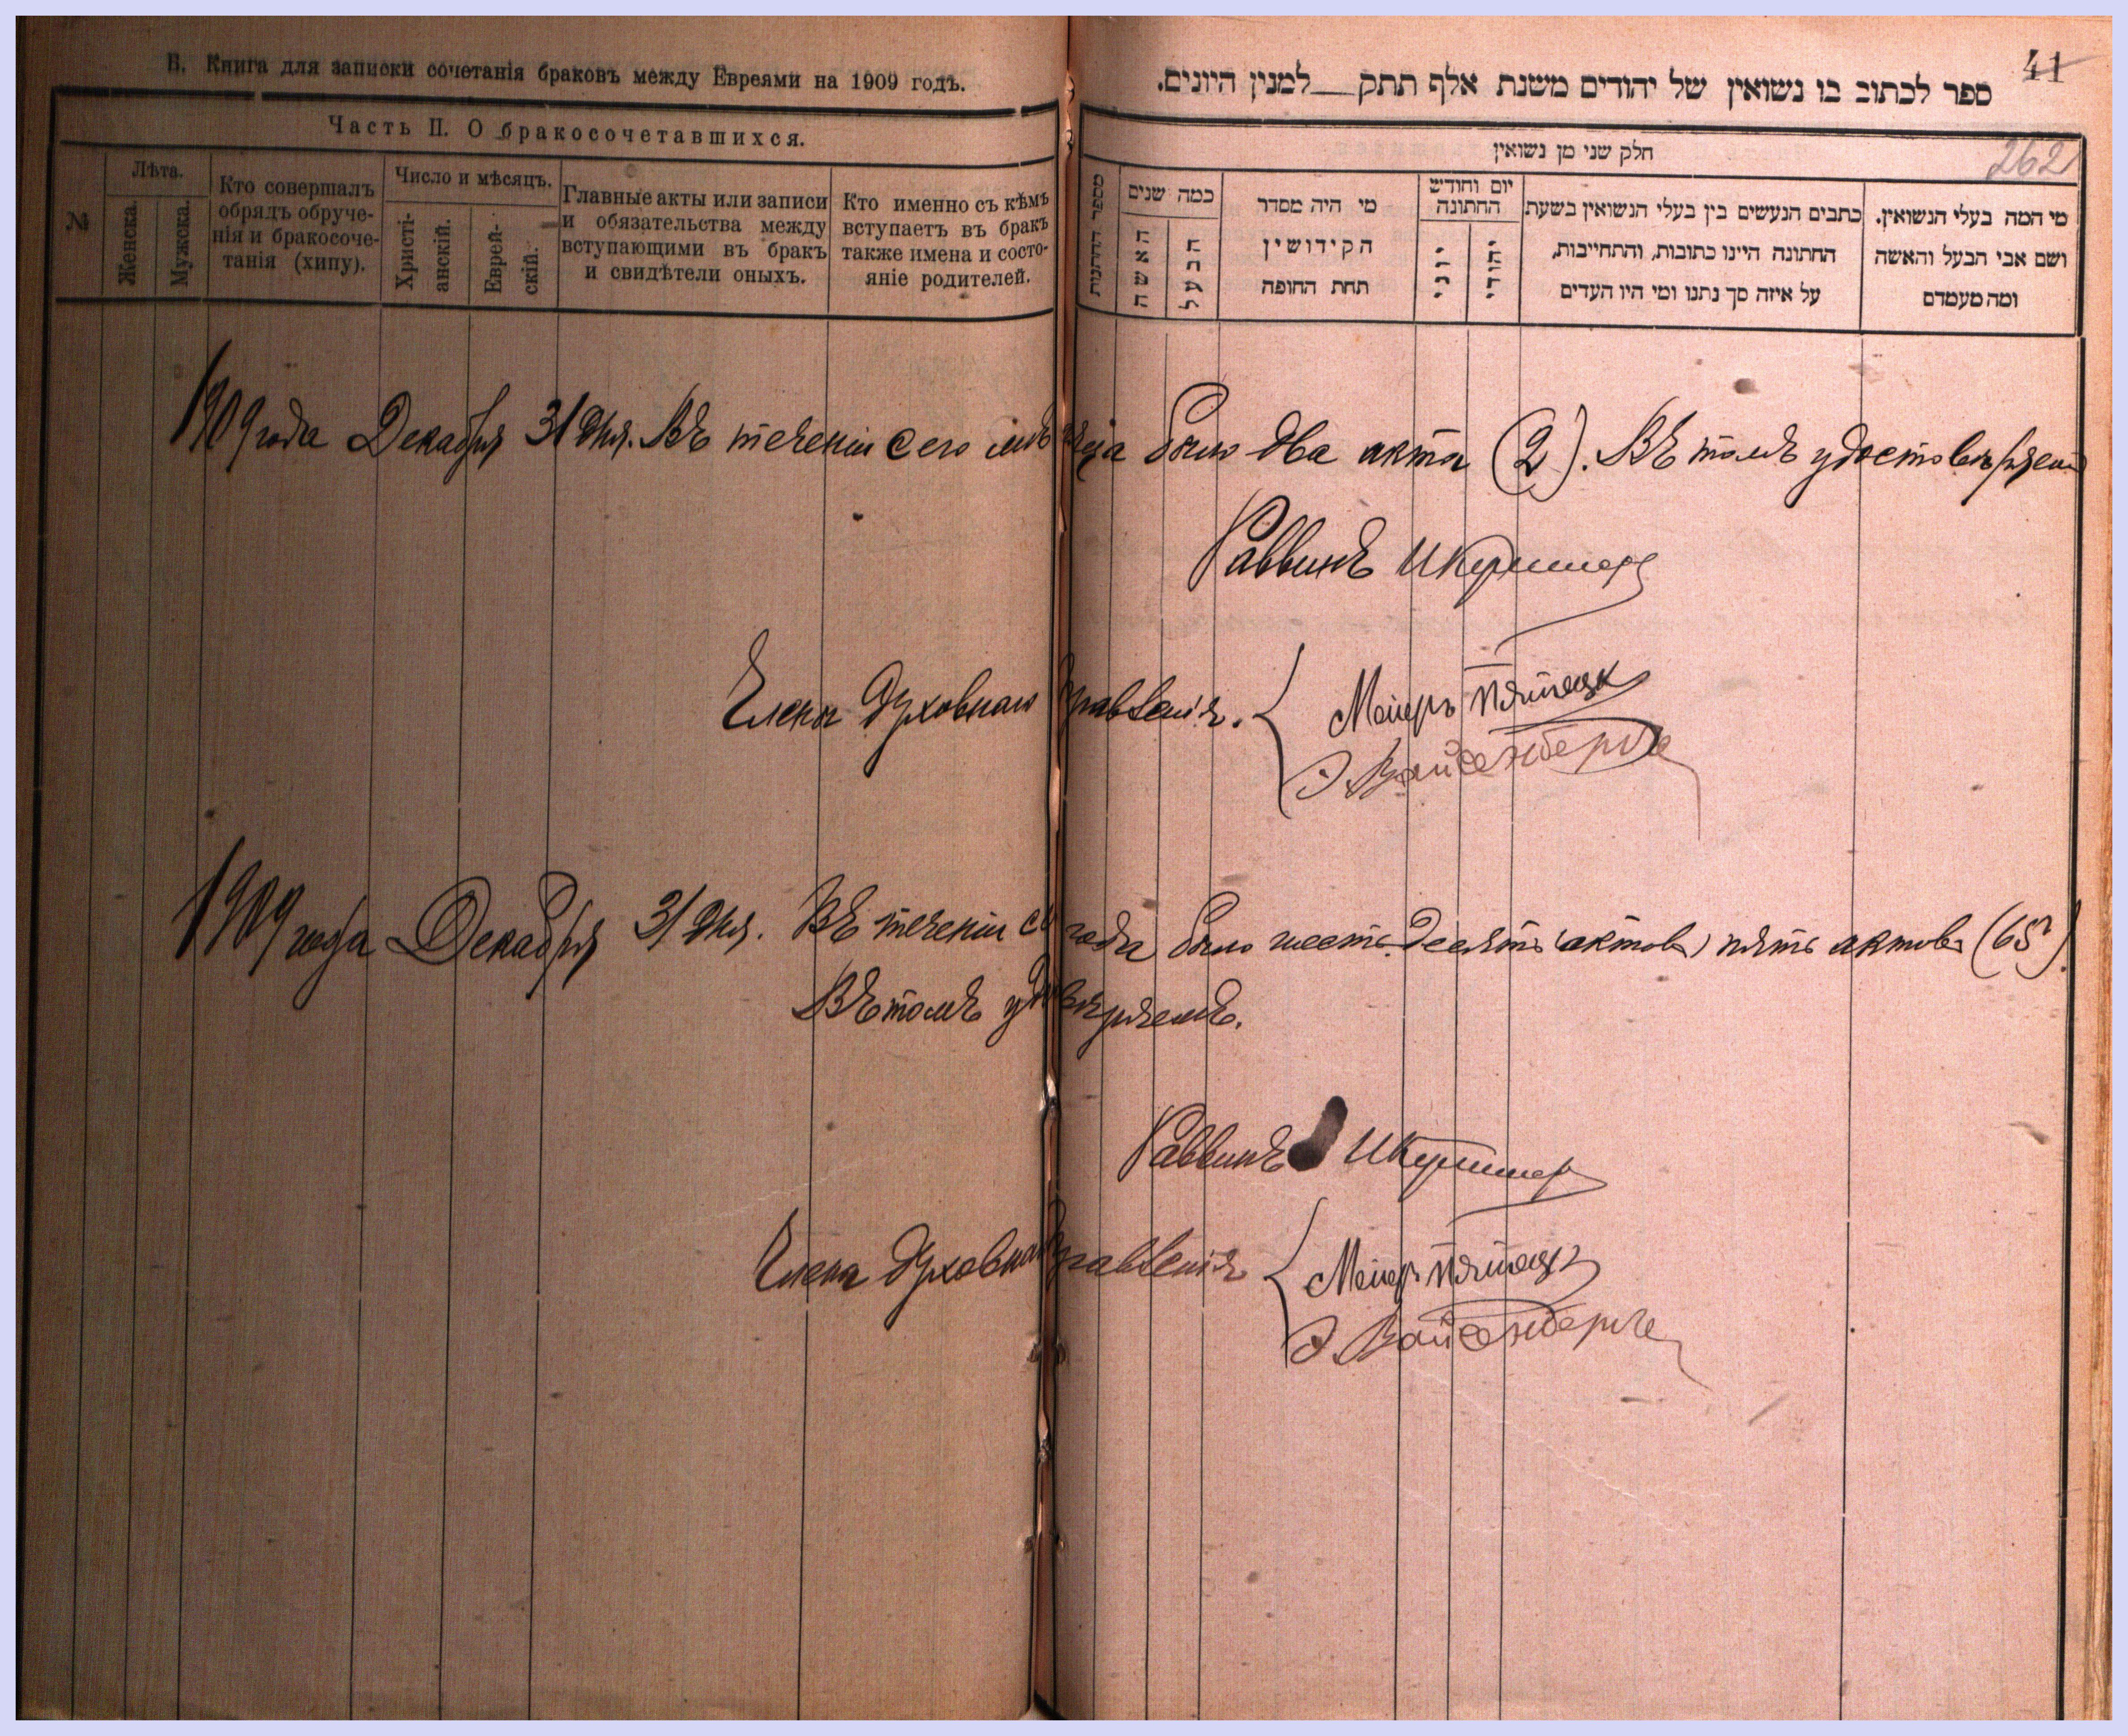 Б. Книга для записки сочетанія браковъ между Евреями на 1909 годъ.
Часть II. О бракосочетавшихся.
№
Лѣта.
Женска.
Мужска.
Кто совершалъ
обрядъ обруче-
нія и бракосоче-
танія (хипу).
Число и мѣсяцъ.
Христі-
анскій.
Еврей-
скій.
Главные акты или записи
и обязательства между
вступающими въ бракъ
и свидѣтели оныхъ.
Кто именно съ кѣмъ
вступаетъ въ бракъ
также имена и состо-
яніе родителей.
41
ספר לכתוב בו נשואין של יהודים משנת אלף תתק__למנין היונים.
262
חלק שני מן נשואין
מספר החתונות
כמה שנים
האשה
הבעל
מי היה מסדר
הקידושין
תחת החופה
יום וחודש
החתונה
יוני
יהודי
כתבים הנעשים בין בעלי הנשואין בשעת
החתונה היינו כתובות, והתחייבות,
על איזה סך נתנו ומי היו העדים
מי המה בעלי הנשואין.
ושם אבי הבעל והאשה
ומה מעמדם
1909 года Декабря 31 дня. Въ теченіи сего мѣсяца было два акта (2). Въ томъ удостовѣряемъ
Раввинъ
Члены духовнаго правленія. Мейеръ Пятецк
Э Вайсенберге
1909 года Декабря 31 дня. Въ теченіи сего года было шестьдесять (актовъ) пять актовъ (65).
Въ томъ удовѣряемъ.
Раввинъ
Члена духовнаго правленія Мейеръ Пятецк
Э Вайсенберге